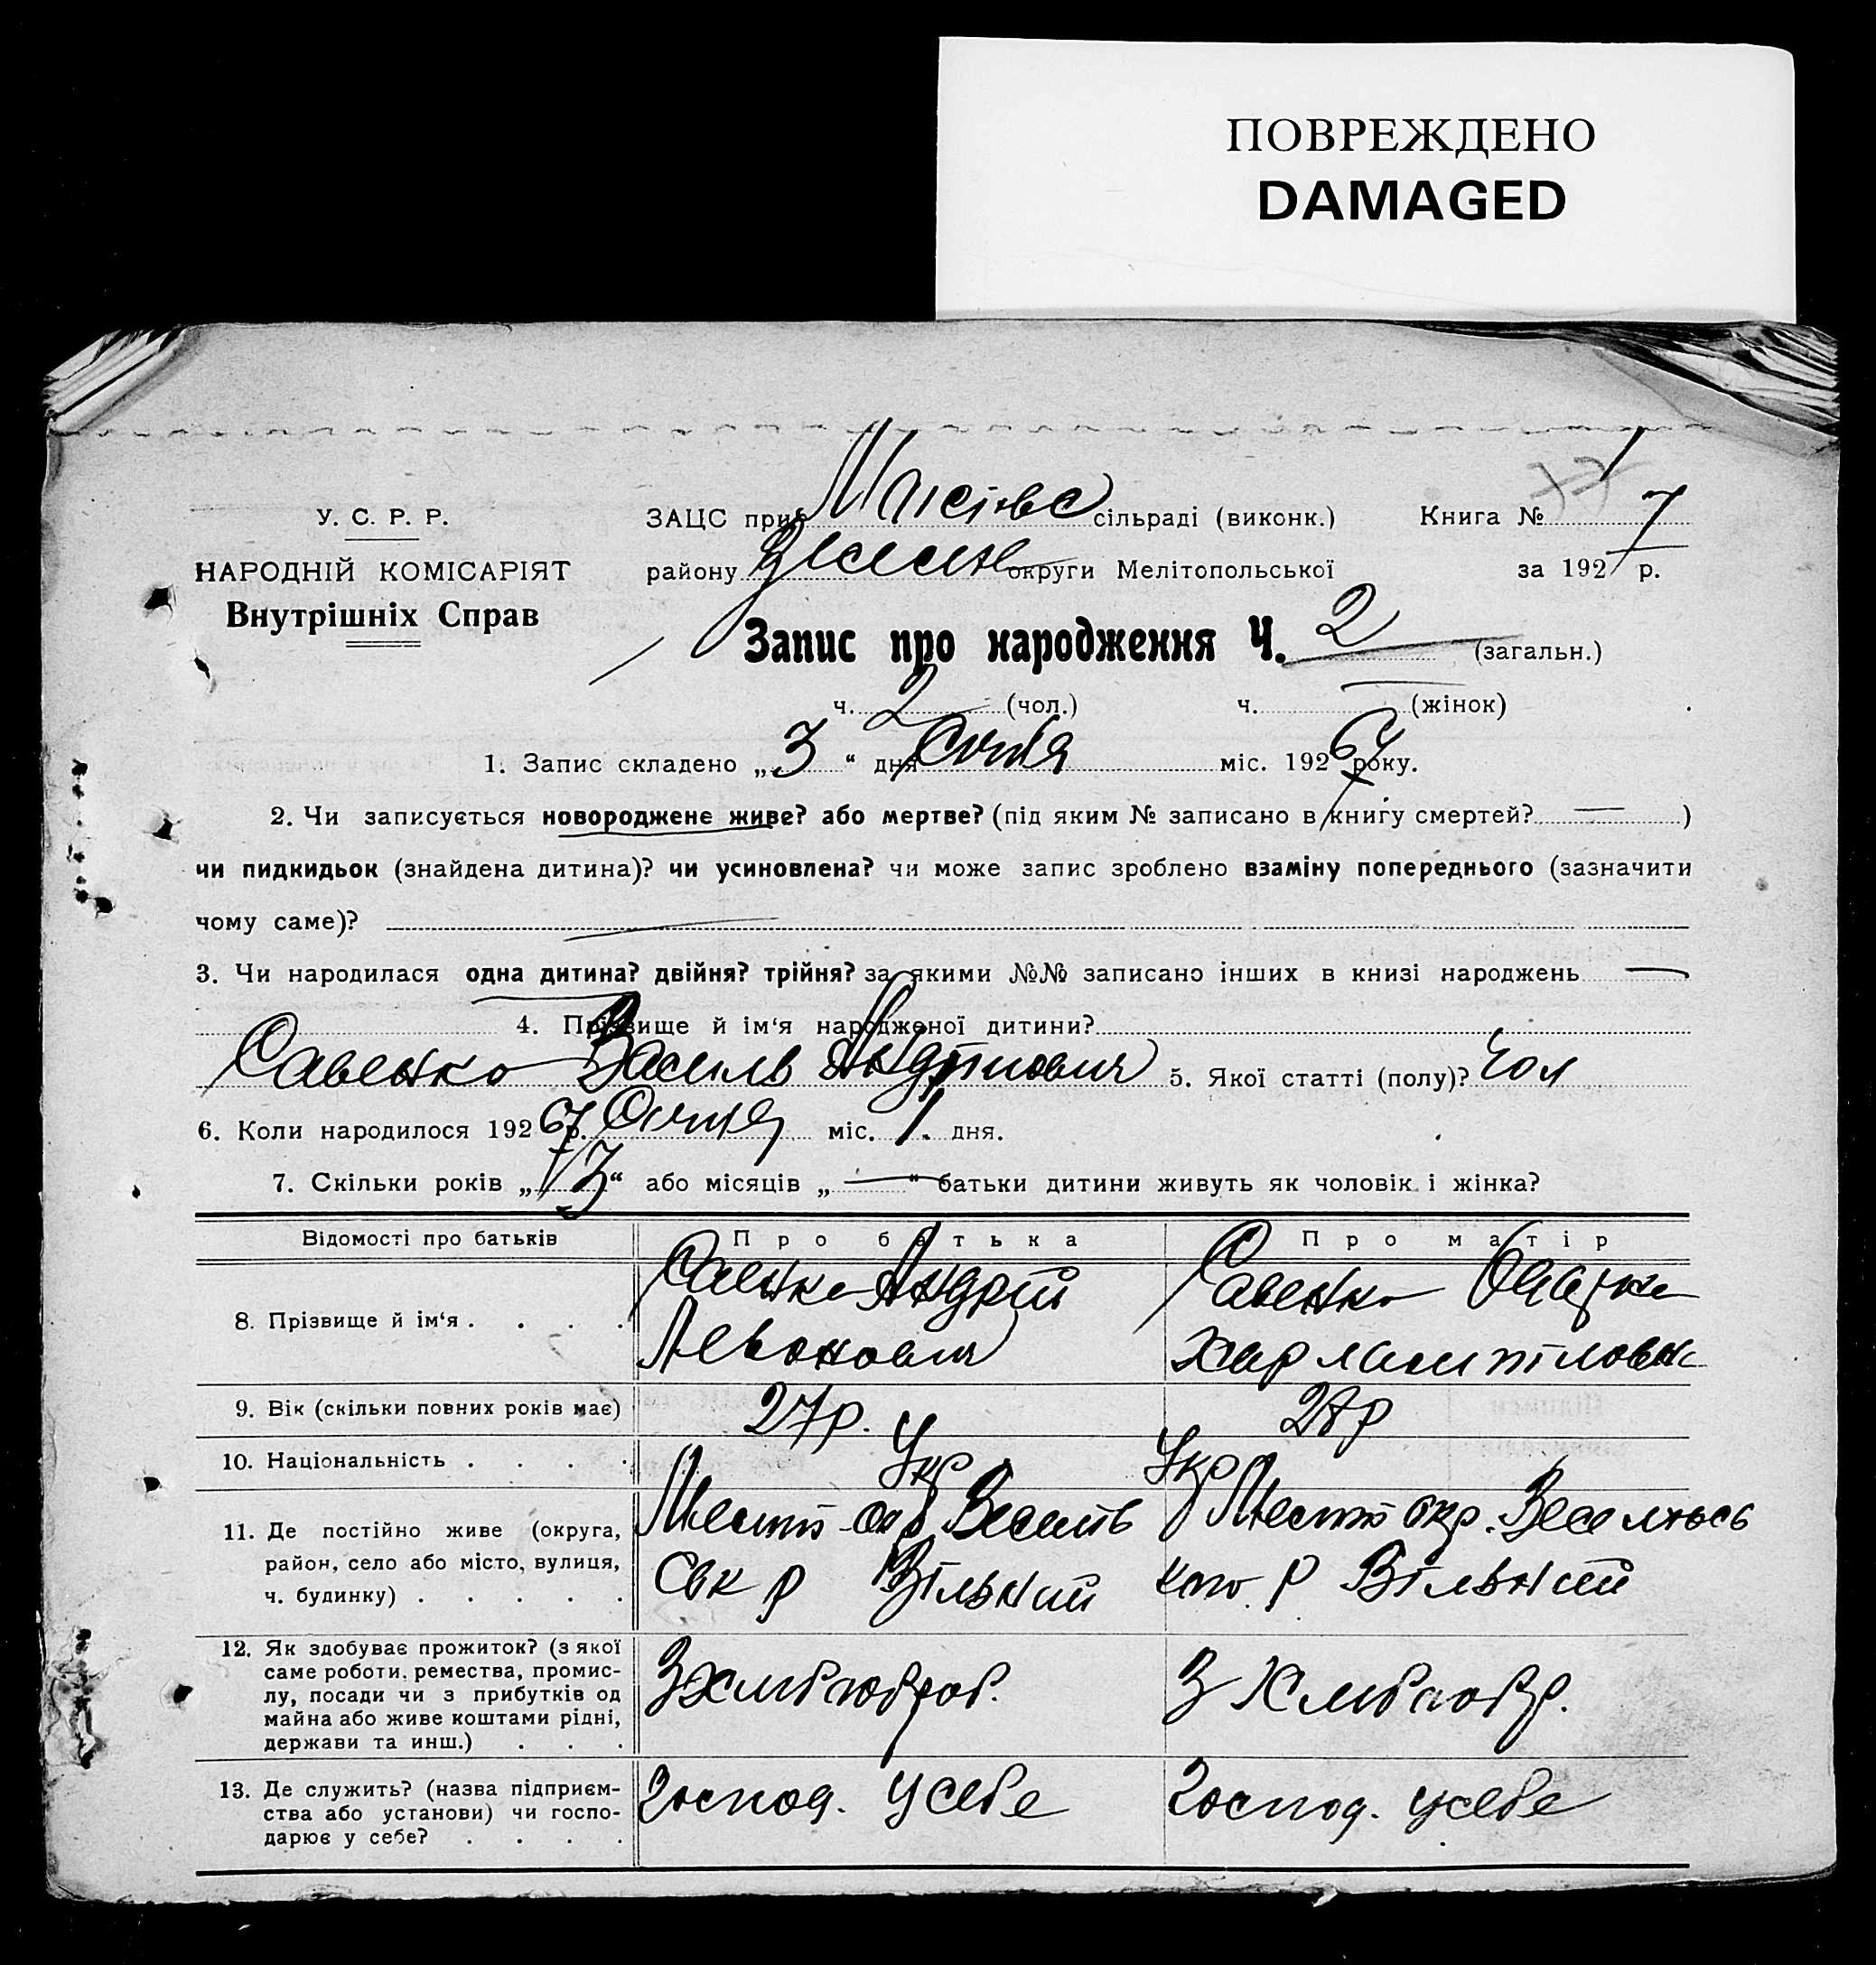 ПОВРЕЖДЕНО
DAMAGED
У. С. Р. Р.
НАРОДНІЙ КОМІСАРІЯТ
Внутрішніх Справ
ЗАЦС при сільраді (виконк.) Книга №
району округи Мелітопольської за 1927 р.
Запис про народження Ч. 2 (загальн.)
ч. 2 (чол.) ч. (жінок)
1. Запис складено „ 3 “ дня Січня міс. 192 року.
2. Чи записується новороджене живе? або мертве? (під яким № записано в книгу смертей? — )
чи пидкидьок (знайдена дитина)? чи усиновлена? чи може запис зроблено взаміну попереднього (зазначити
чому саме)? —
3. Чи народилася одна дитина? двійня? трійня? за якими №№ записано інших в книзі народжень —
4. Прізвище й ім‘я народженої дитини?
Савенко Василь 5. Якої статті (полу)? Чол
6. Коли народилося 192 р. Січня міс. 1. дня.
7. Скільки років „ “ або місяців „ — “ батьки дитини живуть як чоловік і жінка?
Відомості про батьків Про батька Про матір
8. Прізвище й ім‘я . . . . Савенко Андрій Савенко
Левонович
9. Вік (скільки повних років має) 27р. 28р
10. Національність . . . . Укр Укр
11. Де постійно живе (округа, окр. окр.
район, село або місто, вулиця, р Вільний р Вільний
ч. будинку) . . . . .
12. Як здобуває прожиток? (з якої
саме роботи, ремества, промис-
лу, посади чи з прибутків од
майна або живе коштами рідні,
держави та инш.) . . .
13. Де служить? (назва підприєм- Господ. у себе Господ. у себе
ства або установи) чи госпо-
дарює у себе? . . . .